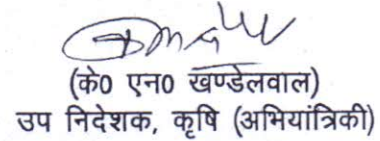 (के० एन० खण्डेलवाल)
उप निदेशक, कृषि (अभियांत्रिकी)